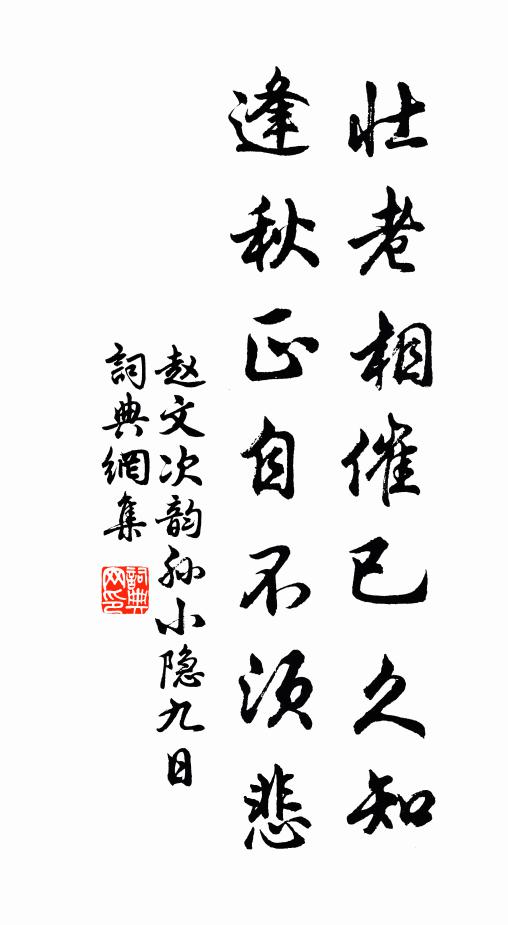 壮老相催已久知
逢秋正自不须悲
赵文次韵孙小隐九日
詞典網集
詞典网印